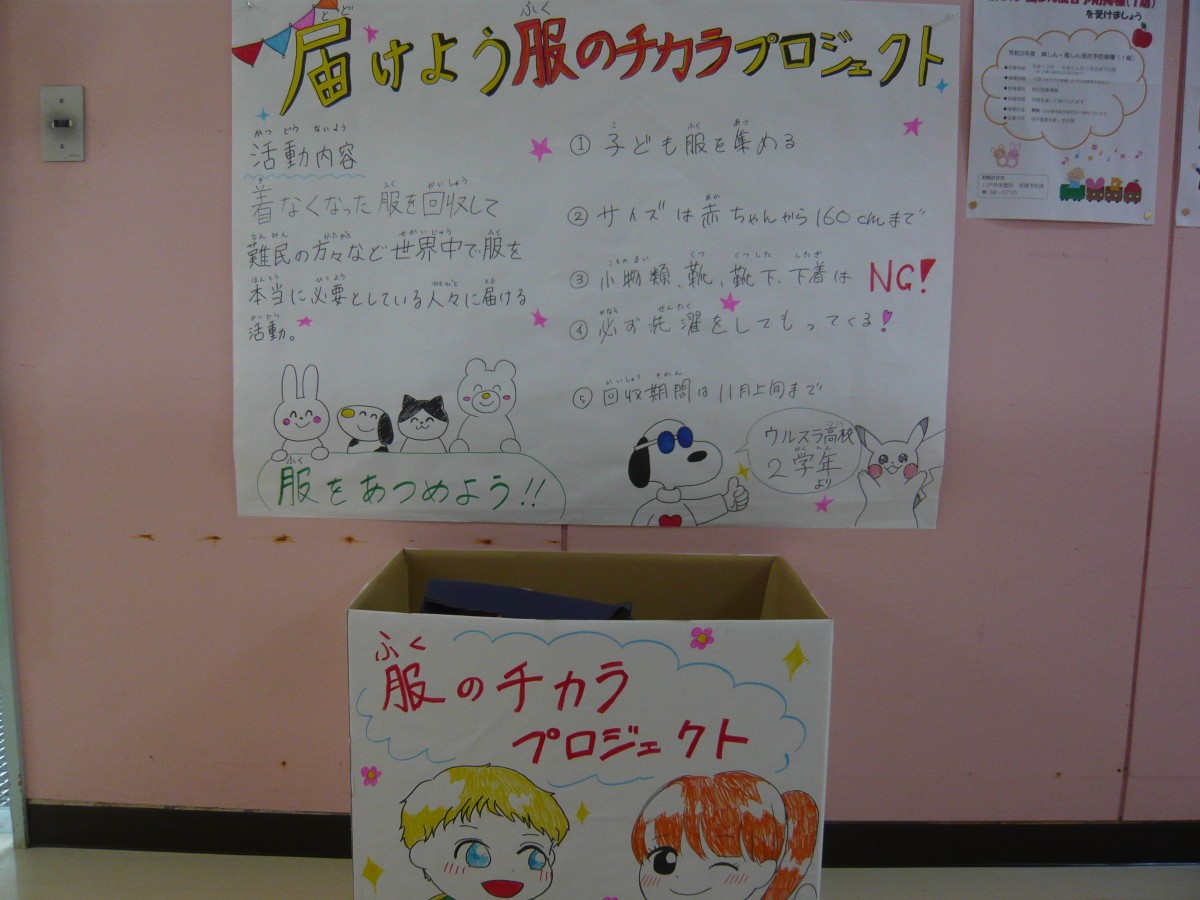 届けよう服のチカラプロジェクト
活動内容
着なくなった服を回収して
難民の方々など世界中で服を
本当に必要としている人々に届ける
活動。
① 子ども服を集める
② サイズは赤ちゃんから160cmまで
③ 小物類、靴、靴下、下着は NG!
④ 必ず洗濯をしてもってくる!
⑤ 回収期間は11月上旬まで
服をあつめよう!!
ウルスラ高校
2学年
より
ふく
服のチカラ
プロジェクト
を受けましょう